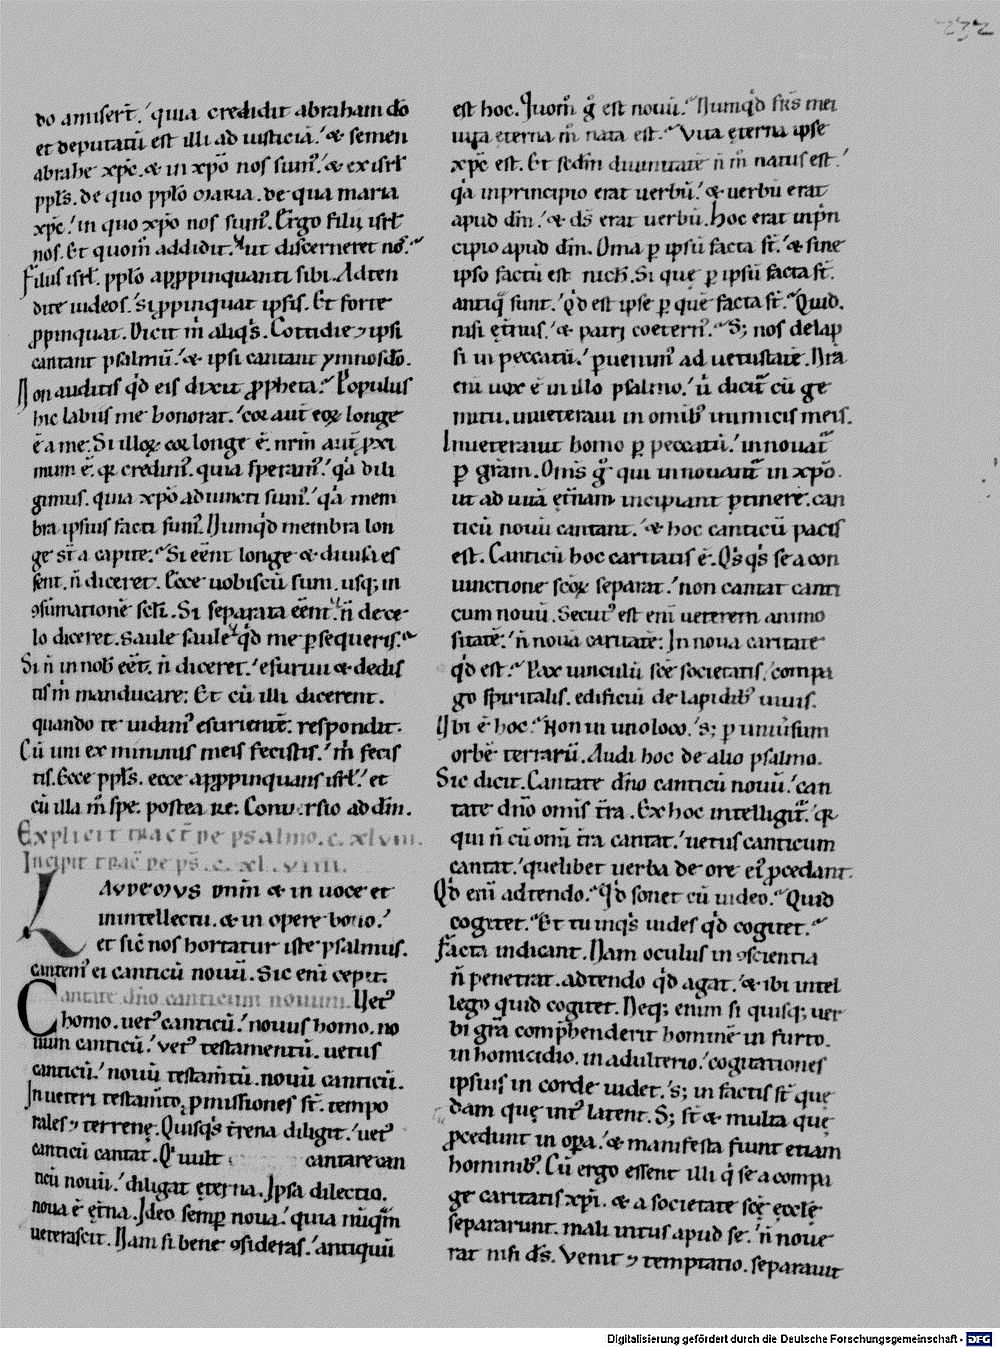 232
do amiser̄t.' quia credidit abraham dō
et deputatū est illi ad iusticiā.' & semen
abrahę xp̄c. & in xp̄o nos sum᷒.' & ex isrł
ppłs. de quo ppło maria. de qua maria
xp̄c.' in quo xp̄o nos sum᷒. Ergo filii isrł
nos. Et quom̄ addidit.' ut discerneret nos̄.
Filiis isrł. ppło appropinquanti sibi. Adten
dite iudeos. Si ꝓpinquat ipsis. Et forte
ꝓpinquat. Dicit m̄ aliq̇s. Cottidie ⁊ ipsi
cantant psalmū.' & ipsi cantant ymnos dō.
Non auditis qd̄ eis dixit ꝓpheta. Populus
hic labiis me honorat.' cor aut̄ eoꝝ longe
ē a me. Si illoꝝ cor longe ē. nrm̄ aut̄ ꝓxi
mum ē. qꝛ credim᷒. quia speram᷒.' qa dili
gimus. quia xp̄o adiuncti sum᷒.' qa mem
bra ipsius facti sum᷒. Numqd̄ membra lon
ge st̄ a capite. Si eēnt longe & diuisa es
sent. n̄ diceret. Ecce uobiscū sum. usq; in
ꝯsūmationē scłi. Si separata eēnt.' n̄ de cę
lo diceret. Saule saule qd̄ me ꝑsequeris.
Si n̄ in nob̄ eēt. n̄ diceret.' esuriui & dedis
tis m̄ manducare. Et cū illi dicerent.
quando te uidim᷒ esurientē. respondit.
Cū uni ex minimis meis fecistis.' m̄ fecis
tis. Ecce ppłs. ecce appropinquans isrł.' et
cū illa m̄ spe. postea re. Conuersio ad dm̄.
Explicit tract̄ de psalmo. c. xlviii.
Incipit trac̄ de ps̄. c. xl. viiii.
LAVDEMVS dnm̄ & in uoce et
in intellectu. & in opere bono.'
et sic̄ nos hortatur iste psalmus.
cantem᷒ ei canticū nouū. Sic enī cepit.
Cantate dn̄o canticum nouum. Uet᷒
homo. uet᷒ canticū.' nouus homo. no
uum canticū.' uet᷒ testamentū. uetus
canticū.' nouū testam̄tū. nouū canticū.
In ueteri testam̄to, ꝓmissiones st̄. tempo
rales ⁊ terrenę. Quisq̇s t̄rena diligit.' uet᷒
canticū cantat. Q᷒ uult cantare can
ticū nouū.' diligat ęterna. Ipsa dilectio.
noua ē ęt̄na. Ideo semꝑ noua.' quia nūqm̄
ueterascit. Nam si bene ꝯsideras.' antiquū
est hoc. Quom̄ g̊ est nouū. Numqd̄ frs̄ mei
uita ęterna m̄ nata est. Vita ęterna ipse
xp̄c est. Et scdm̄ diuinitatē n̄ m̄ natus est.'
qa in principio erat uerbū.' & uerbū erat
apud dm̄.' & ds̄ erat uerbū. Hoc erat in pn̄
cipio apud dm̄. Om̄a ꝑ ipsū facta st̄.' & sine
ipso factū est nichł. Si quę ꝑ ipsū facta st̄.
antiq̄ sunt.' qd̄ est ipse ꝑ quē facta st̄. Quid.
nisi ęt̄nus.' & patri coetern᷒. S; nos delap
si in peccatū.' ꝑuenim᷒ ad uetustatē. Nrā
enī uox ē in illo psalmo.' ū dicit᷒ cū ge
mitu. inueteraui in omib᷒ inimicis meis.
Inueterauit homo ꝑ peccatū.' innouat᷒
ꝑ grām. Oms̄ g̊ qui innouant᷒ in xp̄o.
ut ad uitā ęt̄nam incipiant ꝑtinere. can
ticū nouū cantant.' & hoc canticū pacis
est. Canticū hoc caritatis ē. Q̇sq̇s se a con
iunctione scōꝝ separat.' non cantat canti
cum nouū. Secut᷒ est enī ueterem animo
sitatē.' n̄ nouā caritatē. In noua caritate
qd̄ est. Pax uinculū scę̄ societatis.' compa
go spiritalis. edificiū de lapidib᷒ uiuis.
Ubi ē hoc. Non in uno loco.' s; ꝑ uniūsum
orbē terrarū. Audi hoc de alio psalmo.
Sic dicit. Cantate dn̄o canticū nouū.' can
tate dn̄o omis t̄ra. Ex hoc intelligit᷒.' qꝛ
qui n̄ cū omī t̄ra cantat.' uetus canticum
cantat.' quelibet uerba de ore ei᷒ ꝓcedant.
Qd̄ enī adtendo. Qd̄ sonet cū uideo. Quid
cogitet. Et tu inq̇s uides qd̄ cogitet.
Facta indicant. Nam oculus in ꝯscientia
n̄ penetrat. adtendo qd̄ agat.' & ibi intel
lego quid cogitet. Neq; enim si quisq; uer
bi grā comp̄henderit hominē in furto.
in homicidio. in adulterio.' cogitationes
ipsius in corde uidet.' s; in factis st̄ que
dam quę int᷒ latent. S; st̄ & multa quę
ꝓcedunt in opa.' & manifesta fiunt etiam
hominib᷒. Cū ergo essent illi q̇ se a compa
ge caritatis xp̄i. & a societate scę̄ ęcclę̄
separarunt. mali intus apud se.' n̄ noue
rat nisi ds̄. Venit ⁊ temptatio. separauit
Digitalisierung gefördert durch die Deutsche Forschungsgemeinschaft - DFG